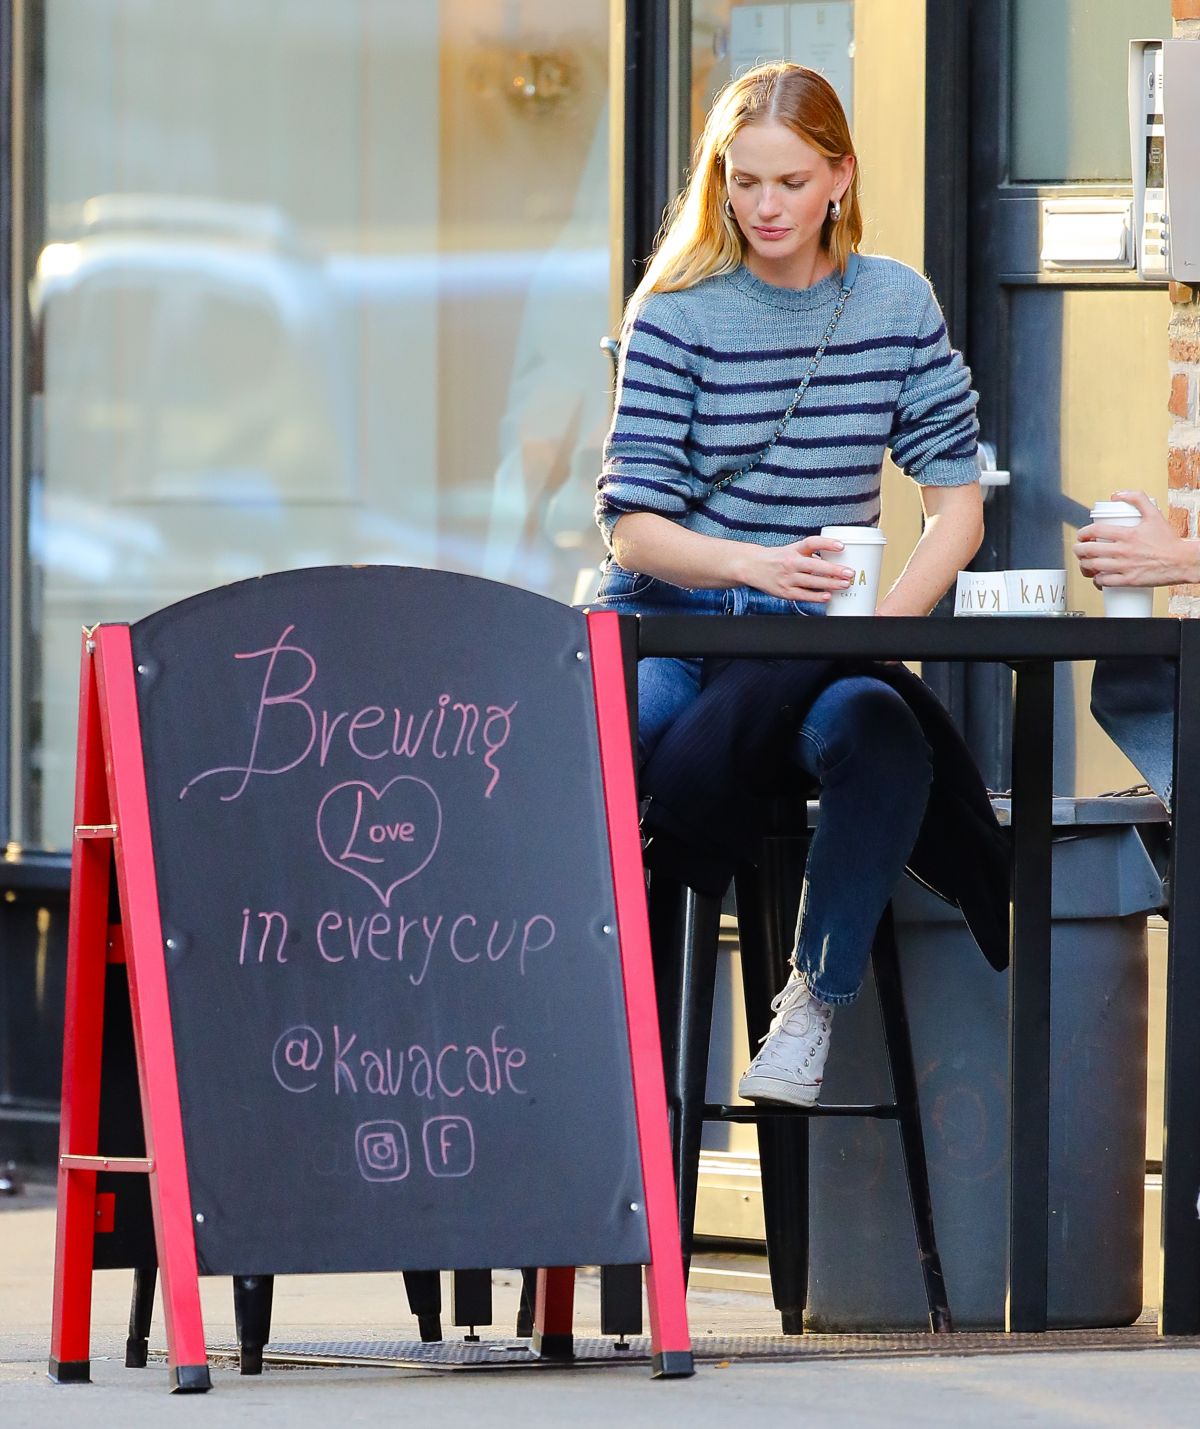 Brewing
Love
in every cup
@Kavacafe
F
VA
CAFE
KAVA
CAFE
KAVA